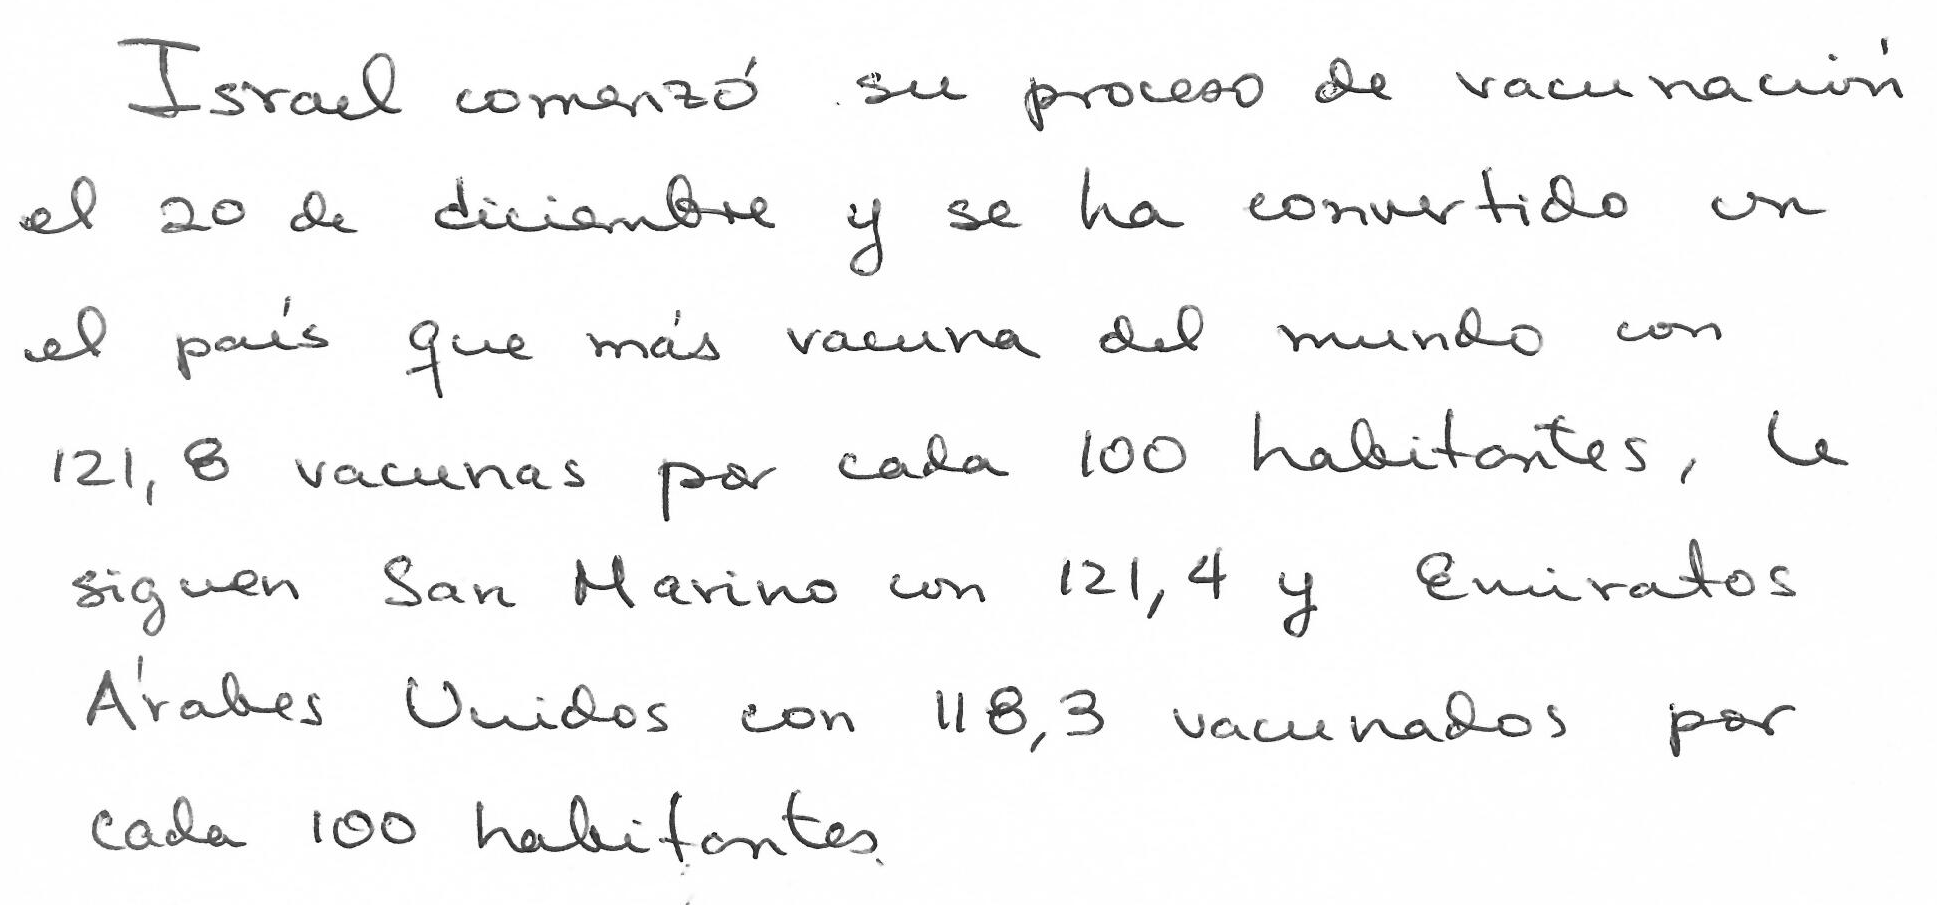 Israel comenzó su proceso de vacunación
el 20 de diciembre y se ha convertido en
el país que más vacuna del mundo con
121,8 vacunas por cada 100 habitantes, le
siguen San Marino con 121,4 y Emiratos
Árabes Unidos con 118,3 vacunados por
cada 100 habitantes.